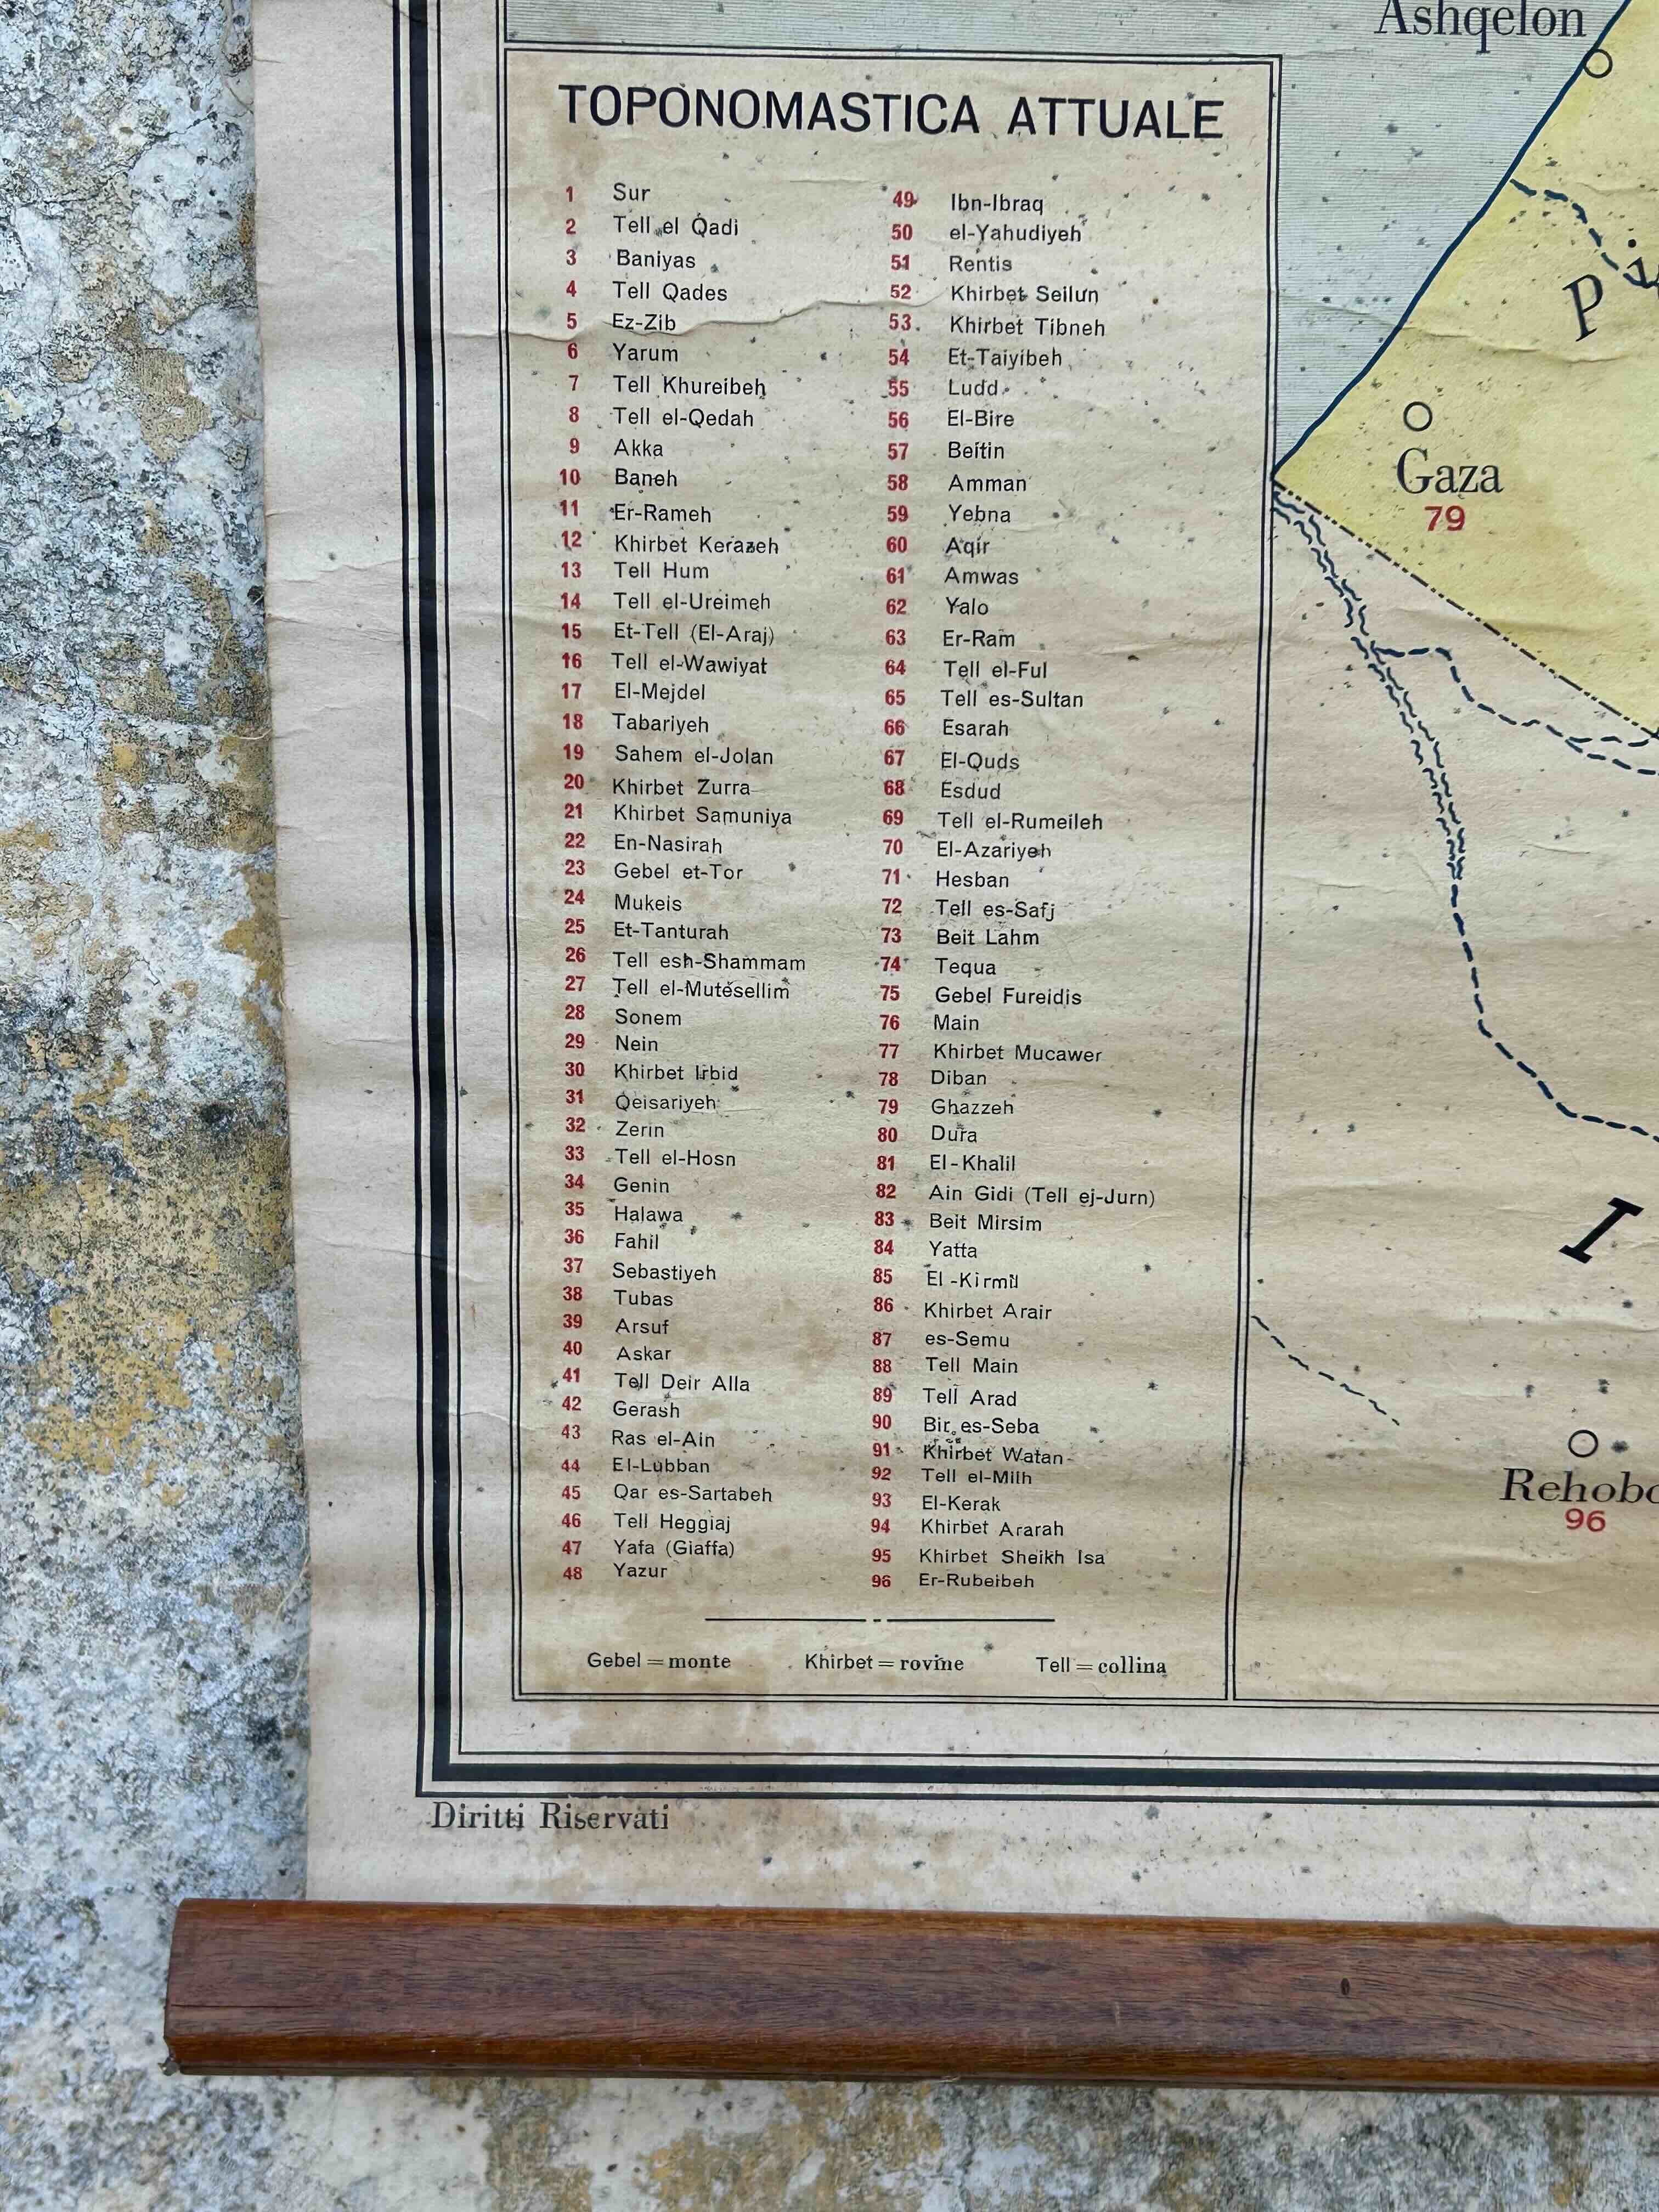 Ashqelon
TOPONOMASTICA ATTUALE
1 Sur
2 Tell el Qadi
3 Baniyas
4 Tell Qades
5 Ez-Zib
6 Yarum
7 Tell Khureibeh
8 Tell el-Qedah
9 Akka
10 Baneh
11 Er-Rameh
12 Khirbet Kerazeh
13 Tell Hum
14 Tell el-Ureimeh
15 Et-Tell (El-Araj)
16 Tell el-Wawiyat
17 El-Mejdel
18 Tabariyeh
19 Sahem el-Jolan
20 Khirbet Zurra
21 Khirbet Samuniya
22 En-Nasirah
23 Gebel et-Tor
24 Mukeis
25 Et-Tanturah
26 Tell esh-Shammam
27 Tell el-Mutesellim
28 Sonem
29 Nein
30 Khirbet Irbid
31 Qeisariyeh
32 Zerin
33 Tell el-Hosn
34 Genin
35 Halawa
36 Fahil
37 Sebastiyeh
38 Tubas
39 Arsuf
40 Askar
41 Tell Deir Alla
42 Gerash
43 Ras el-Ain
44 El-Lubban
45 Qar es-Sartabeh
46 Tell Heggiaj
47 Yafa (Giaffa)
48 Yazur
49 Ibn-Ibraq
50 el-Yahudiyeh
51 Rentis
52 Khirbet Seilun
53 Khirbet Tibneh
54 Et-Taiyibeh
55 Ludd
56 El-Bire
57 Beitin
58 Amman
59 Yebna
60 Aqir
61 Amwas
62 Yalo
63 Er-Ram
64 Tell el-Ful
65 Tell es-Sultan
66 Esarah
67 El-Quds
68 Esdud
69 Tell el-Rumeileh
70 El-Azariyeh
71 Hesban
72 Tell es-Safj
73 Beit Lahm
74 Tequa
75 Gebel Fureidis
76 Main
77 Khirbet Mucawer
78 Diban
79 Ghazzeh
80 Dura
81 El-Khalil
82 Ain Gidi (Tell ej-Jurn)
83 Beit Mirsim
84 Yatta
85 El-Kirmil
86 Khirbet Arair
87 es-Semu
88 Tell Main
89 Tell Arad
90 Bir es-Seba
91 Khirbet Watan
92 Tell el-Milh
93 El-Kerak
94 Khirbet Ararah
95 Khirbet Sheikh Isa
96 Er-Rubeibeh
Gebel = monte Khirbet = rovine Tell = collina
P
Gaza
79
I
Rehobo
96
Diritti Riservati